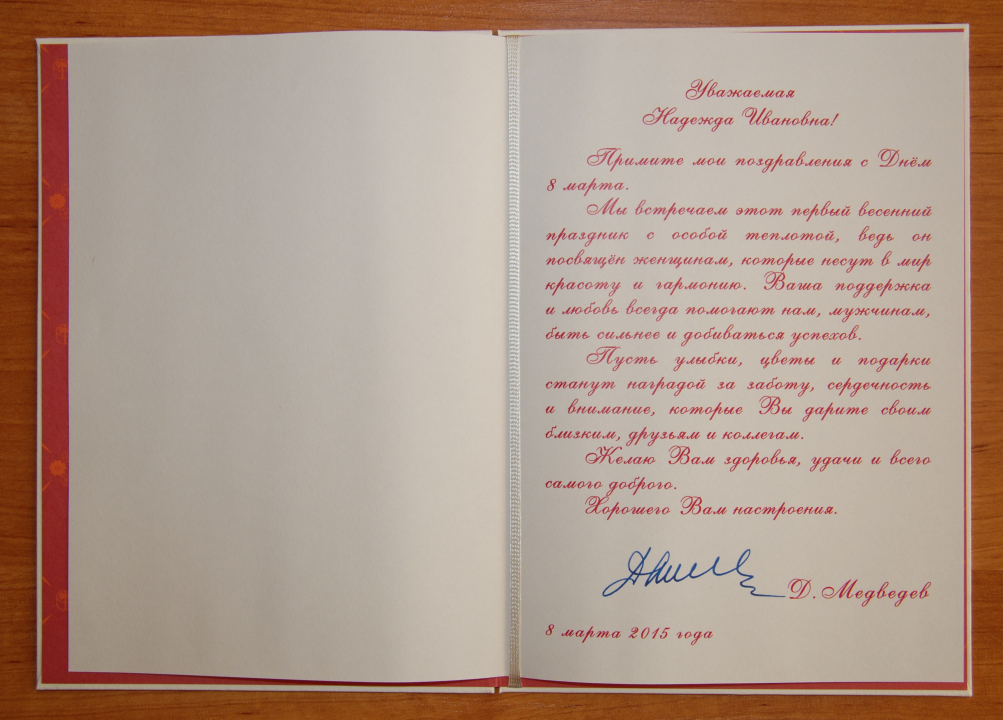 Уважаемая
Надежда Ивановна!
Примите мои поздравления с Днём
8 марта.
Мы встречаем этот первый весенний
праздник с особой теплотой, ведь он
посвящён женщинам, которые несут в мир
красоту и гармонию. Ваша поддержка
и любовь всегда помогают нам, мужчинам,
быть сильнее и добиваться успехов.
Пусть улыбки, цветы и подарки
станут наградой за заботу, сердечность
и внимание, которые Вы дарите своим
близким, друзьям и коллегам.
Желаю Вам здоровья, удачи и всего
самого доброго.
Хорошего Вам настроения.
Д. Медведев
8 марта 2015 года